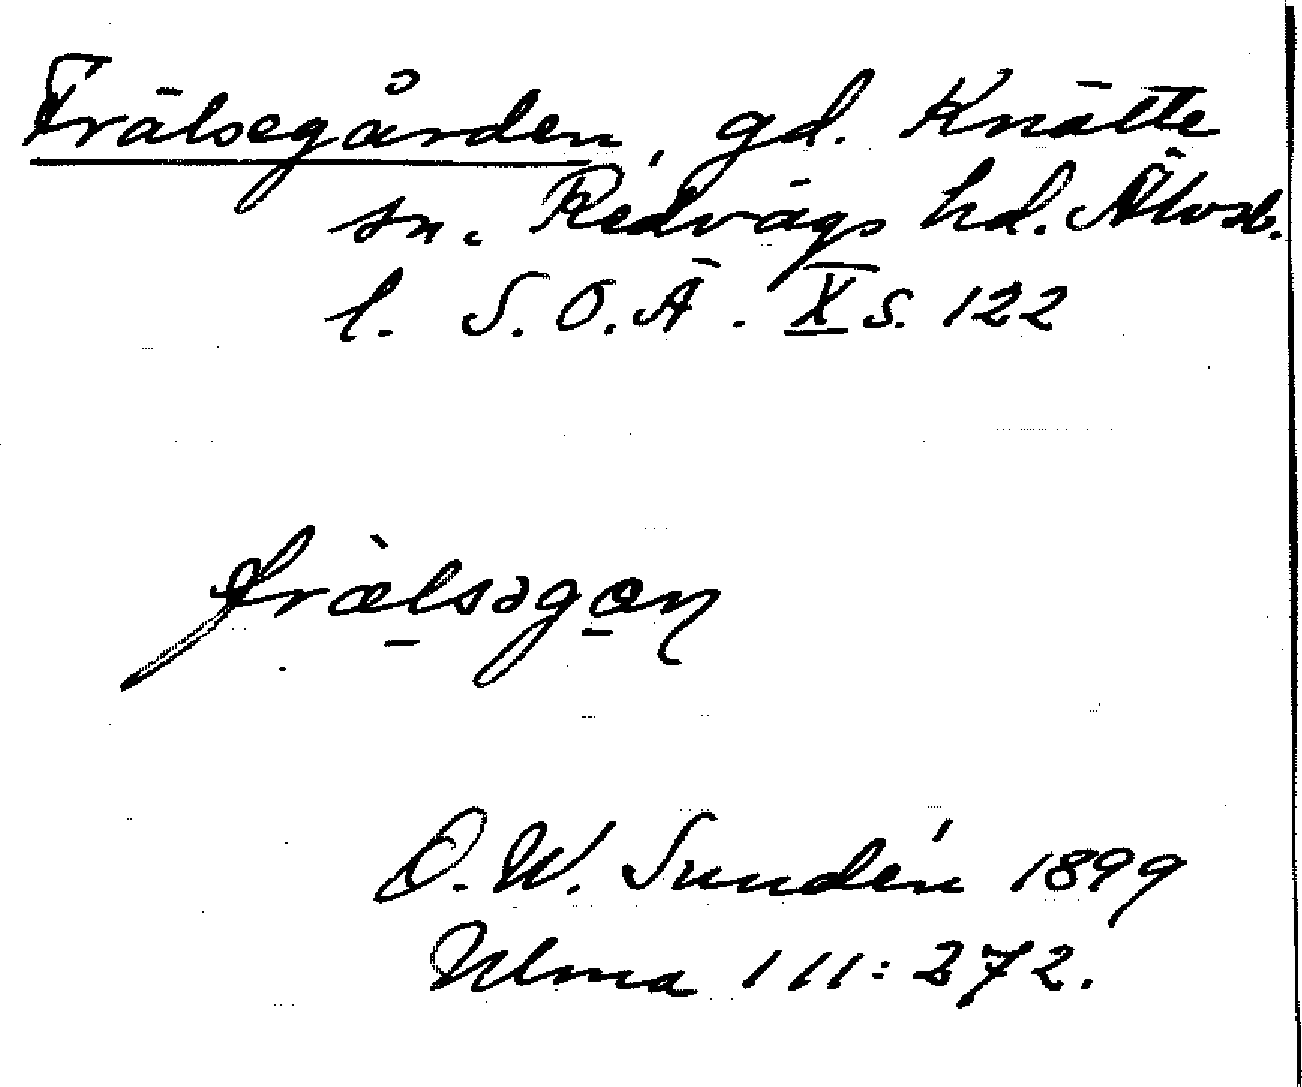 Frälsegården, gd. Knätte
sn. Redvägs hd. Älvsb.
l. S.O.Ä. X s. 122
frælsəgɑn
D.W. Sundén 1899
Ulma 111:272.